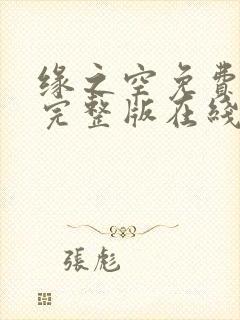 缘之空免費
完整版在綫
張彪